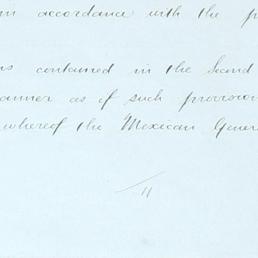 in accordance with the p
ns contained in the Second
anner as if such provision
whereof the Mexican Gener
11